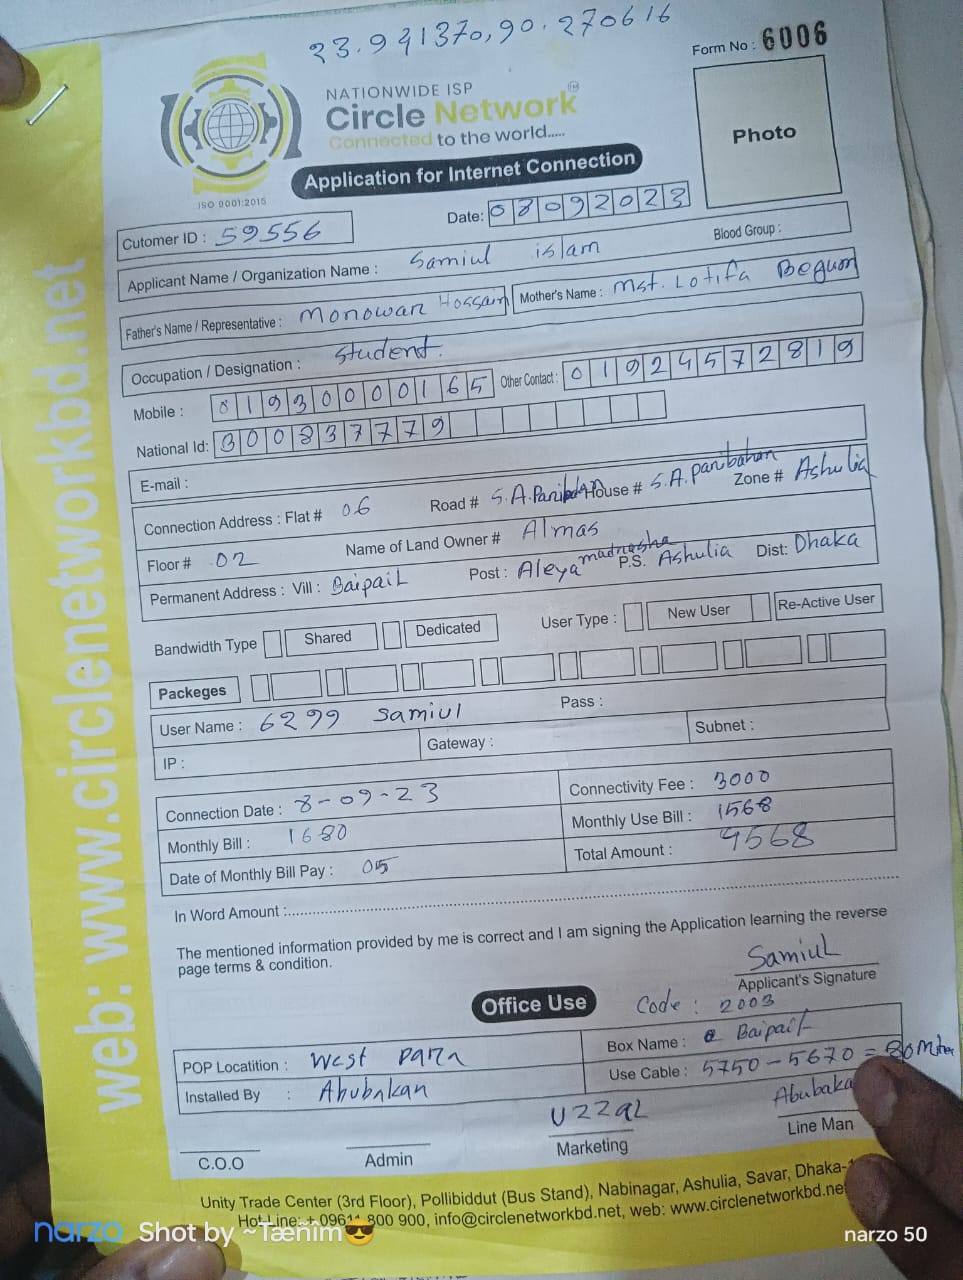 23.941370, 90.270616
Form No : 6006
NATIONWIDE ISP
Circle Network
Connected to the world.....
ISO 9001:2015
Application for Internet Connection
Photo
Cutomer ID : 59556
Date: 08092023
Applicant Name / Organization Name : Samiul islam
Blood Group :
Father's Name / Representative : Monowar Hossain
Mother's Name : Mst. Lotifa Begum
Occupation / Designation : Student.
Mobile : 01930000165
Other Contact : 01924572819
National Id: 3008377779
E-mail :
Connection Address : Flat # 06 Road # S.A.Paribahan House # S.A. paribahan Zone # Ashulia
Floor # 02 Name of Land Owner # Almas
Permanent Address : Vill : Baipail Post : Aleya madrasha P.S. Ashulia Dist: Dhaka
Bandwidth Type Shared Dedicated User Type : New User Re-Active User
Packeges
User Name : 6299 Samiul Pass :
IP : Gateway : Subnet :
Connection Date : 8-09-23 Connectivity Fee : 3000
Monthly Bill : 1680 Monthly Use Bill : 1568
Date of Monthly Bill Pay : 05 Total Amount : 4568
In Word Amount :
The mentioned information provided by me is correct and I am signing the Application learning the reverse
page terms & condition.
Samiul
Applicant's Signature
Office Use
Code : 2003
POP Locatition : West para Box Name : Baipail
Installed By : Abubakar Use Cable : 5750 - 5670 = 80 Miter
Uzzal
Abubaka
C.O.O Admin Marketing Line Man
Unity Trade Center (3rd Floor), Pollibiddut (Bus Stand), Nabinagar, Ashulia, Savar, Dhaka-
HotLine: + 09611 800 900, info@circlenetworkbd.net, web: www.circlenetworkbd.ne
web: www.circlenetworkbd.net
narzo Shot by ~Tænim😎
narzo 50